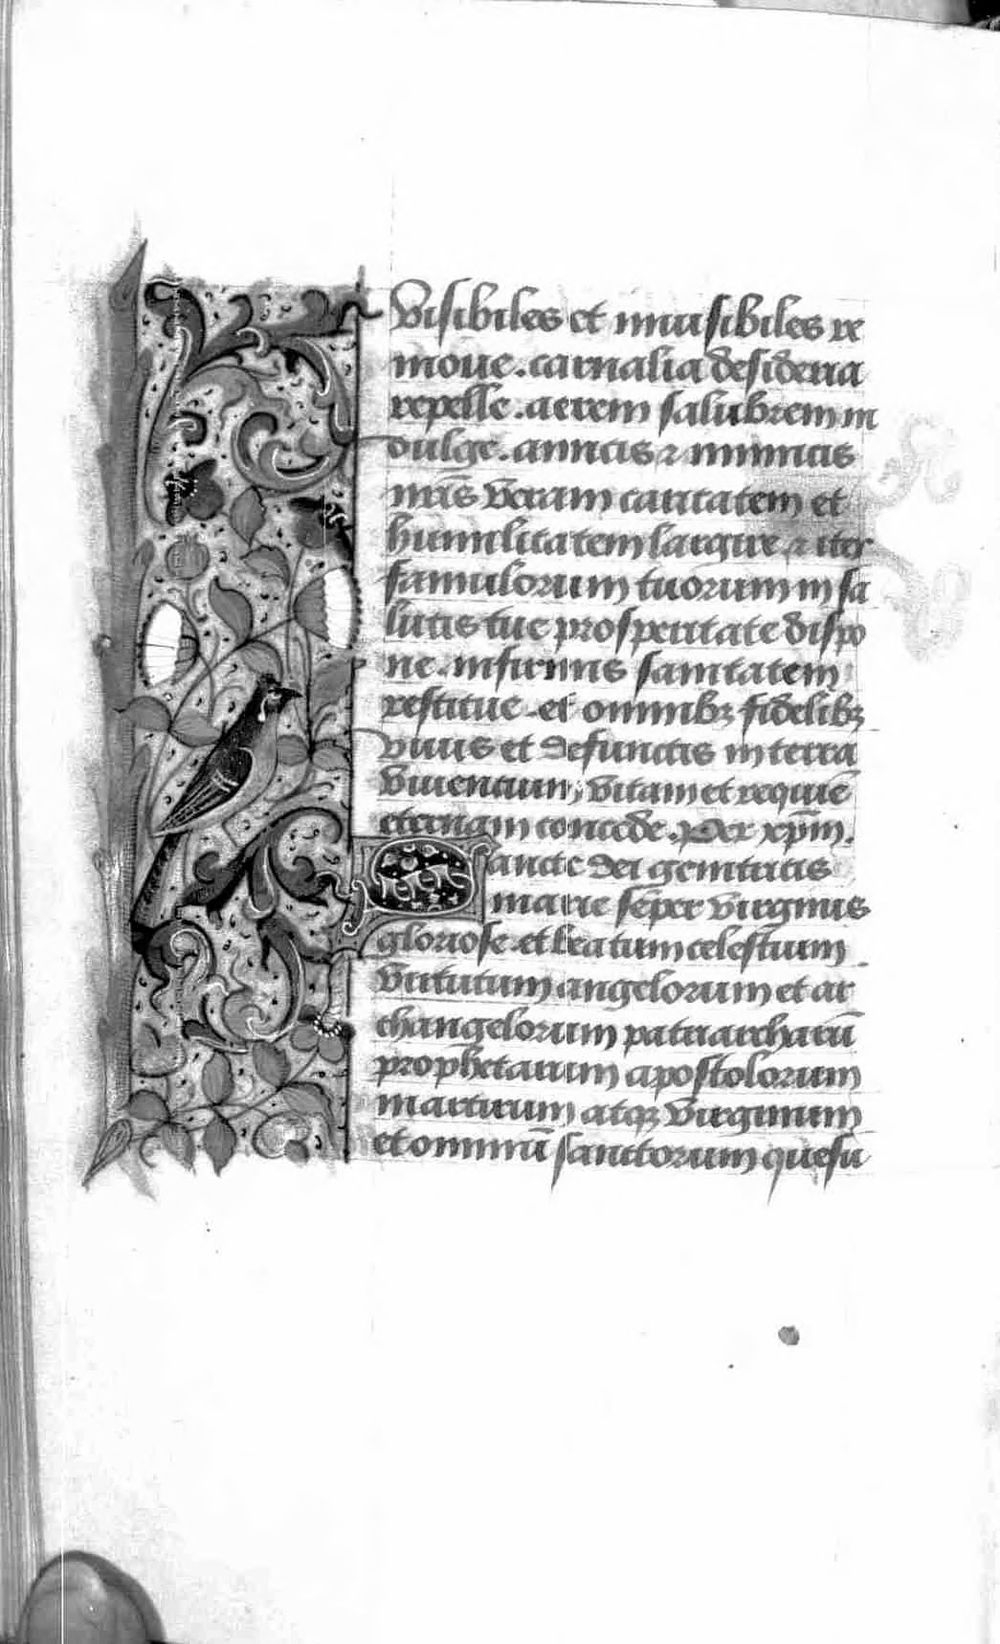 visibiles et inuisibiles re
moue. carnalia desideria
repelle. aerem salubrem in
dulge. amicis ⁊ inimicis
nr̄is veram caritatem et
humilitatem largire ⁊ iter
famulorum tuorum in sa
lutis tue prosperitate dispo
ne. infirmis sanitatem
restitue. et omnibꝫ fidelibꝫ
viuis et defunctis in terra
viuentium, vitam et requiē
eternam concede. Per xp̄m.
Sancte dei genitricis
marie sēper virginis
gloriose. et beatum celestium
virtutum angelorum et ar
changelorum patriarcharū
prophetarum apostolorum
martirum atqꝫ virginum
et omniū sanctorum quesu